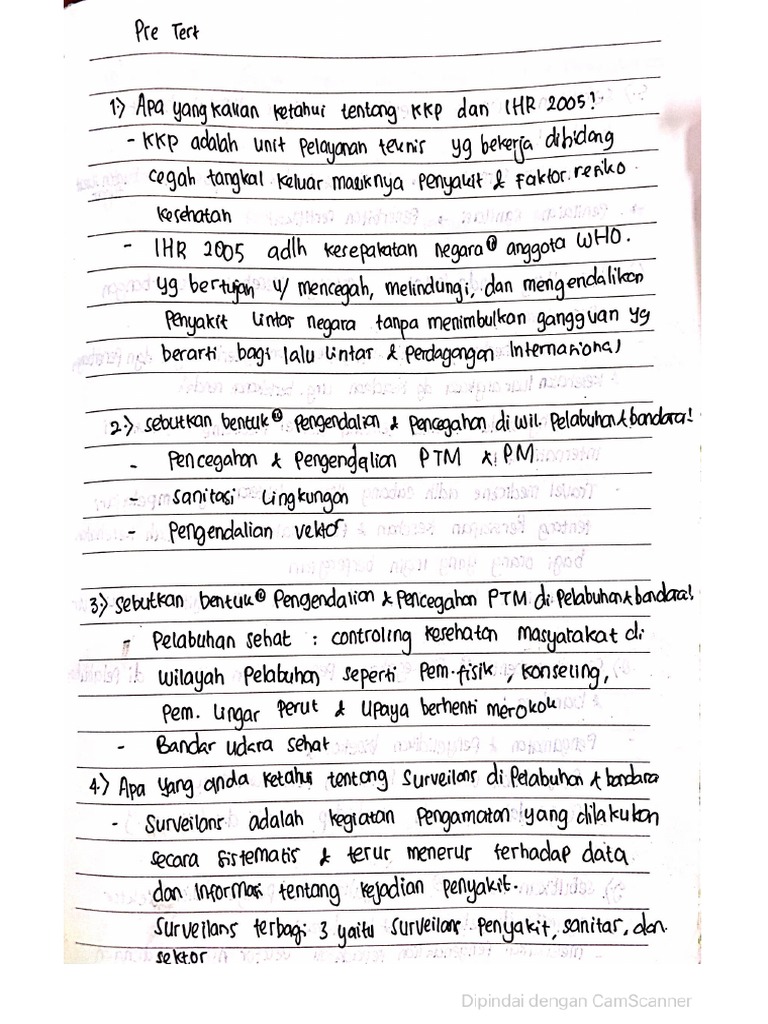 Pre Test
1.) Apa yang kalian ketahui tentang KKP dan IHR 2005!
- KKP adalah unit pelayanan teknis yg bekerja dibidang
cegah tangkal keluar masuknya penyakit & faktor resiko
kesehatan
- IHR 2005 adlh kesepakatan negara² anggota WHO.
yg bertujan u/ mencegah, melindungi, dan mengendalikan
penyakit lintas negara tanpa menimbulkan gangguan yg
berarti bagi lalu lintas & perdagangan Internasional
2.) Sebutkan bentuk² pengendalian & pencegahan di wil. pelabuhan & bandara!
- Pencegahan & pengendalian PTM & PM
- Sanitasi Lingkungan
- Pengendalian vektor
3.) Sebutkan bentuk² pengendalian & pencegahan PTM di pelabuhan & bandara!
- Pelabuhan sehat : controling kesehatan masyatakat di
wilayah pelabuhan seperti pem. fisik, konseling,
pem. lingar perut & upaya berhenti merokok
- Bandar udara sehat
4.) Apa yang anda ketahui tentang surveilans di pelabuhan & bandara
- Surveilans adalah kegiatan pengamatan yang dilakukan
secara sistematis & terus menerus terhadap data
dan informasi tentang kejadian penyakit.
Surveilans terbagi 3 yaitu surveilans penyakit, sanitas, dan
sektor
Dipindai dengan CamScanner